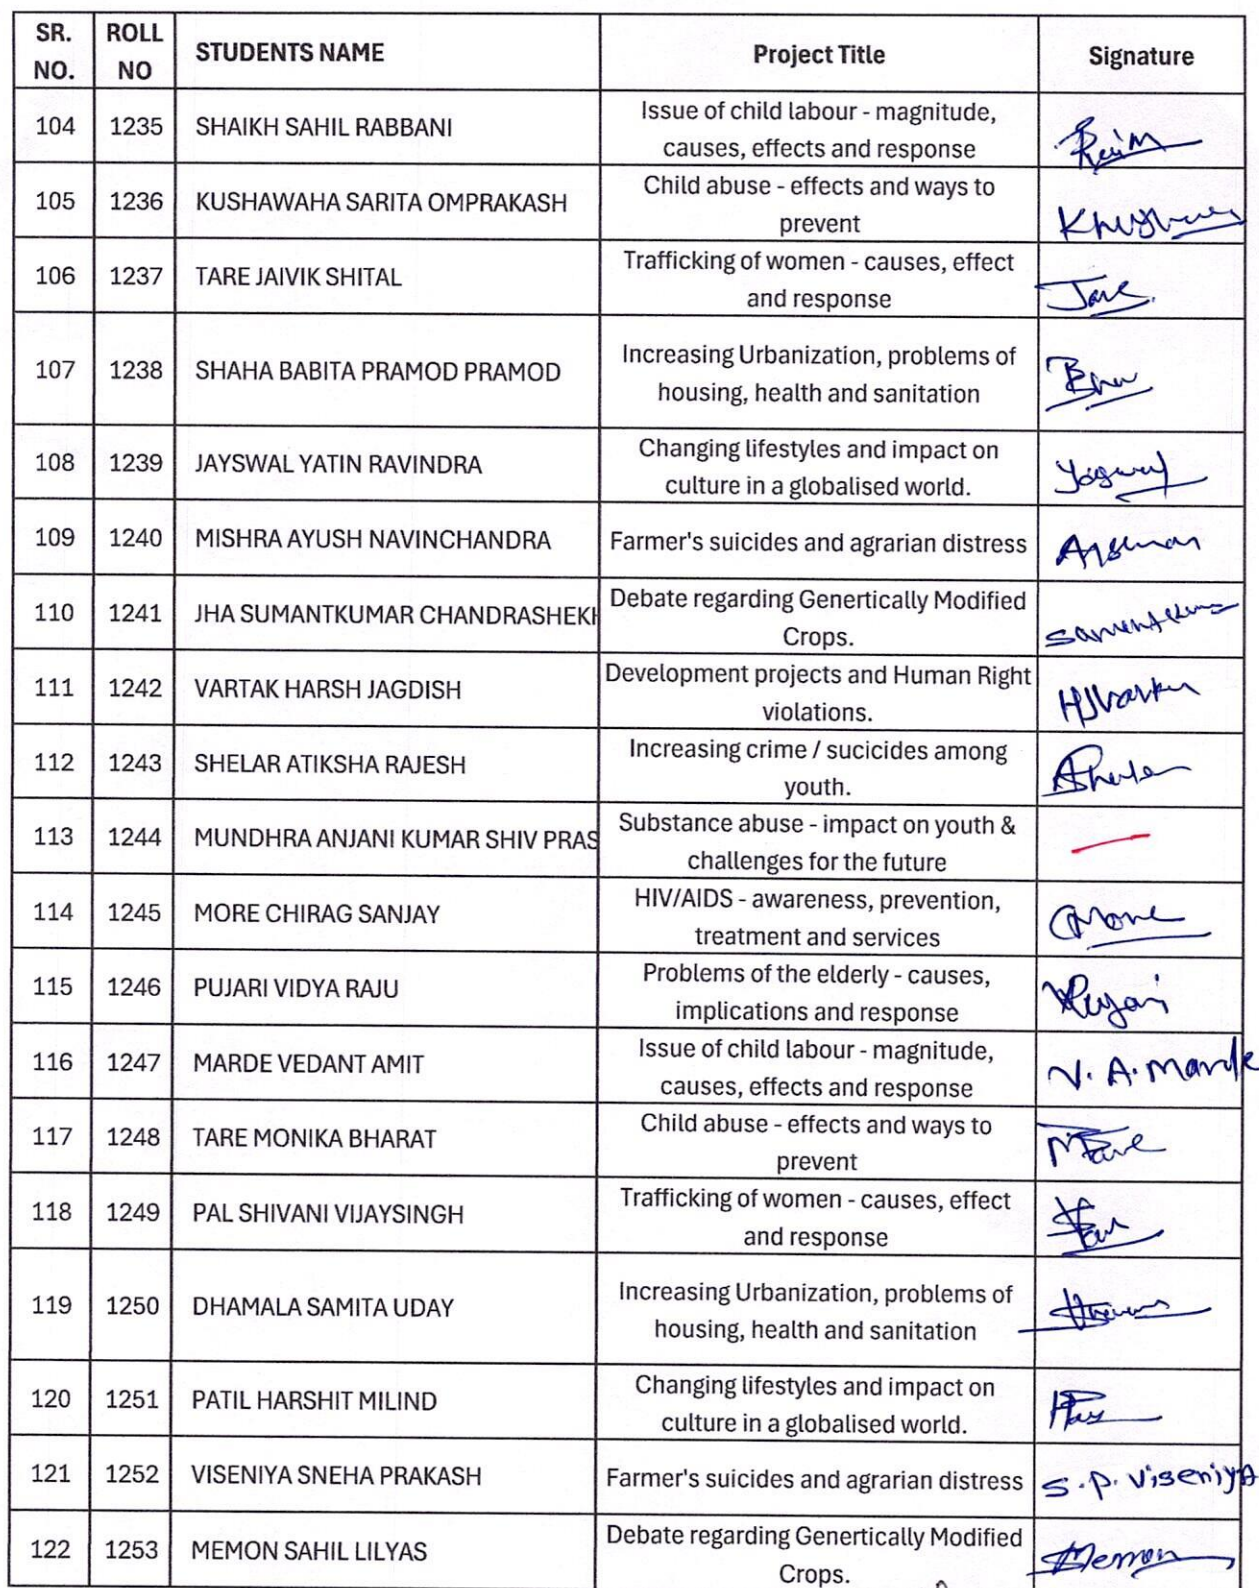 SR. NO. ROLL NO STUDENTS NAME Project Title Signature
104 1235 SHAIKH SAHIL RABBANI Issue of child labour - magnitude,
causes, effects and response
105 1236 KUSHAWAHA SARITA OMPRAKASH Child abuse - effects and ways to
prevent
106 1237 TARE JAIVIK SHITAL Trafficking of women - causes, effect
and response
107 1238 SHAHA BABITA PRAMOD PRAMOD Increasing Urbanization, problems of
housing, health and sanitation
108 1239 JAYSWAL YATIN RAVINDRA Changing lifestyles and impact on
culture in a globalised world.
109 1240 MISHRA AYUSH NAVINCHANDRA Farmer's suicides and agrarian distress
110 1241 JHA SUMANTKUMAR CHANDRASHEKH Debate regarding Genertically Modified
Crops.
111 1242 VARTAK HARSH JAGDISH Development projects and Human Right
violations.
112 1243 SHELAR ATIKSHA RAJESH Increasing crime / sucicides among
youth.
113 1244 MUNDHRA ANJANI KUMAR SHIV PRAS Substance abuse - impact on youth &
challenges for the future
114 1245 MORE CHIRAG SANJAY HIV/AIDS - awareness, prevention,
treatment and services
115 1246 PUJARI VIDYA RAJU Problems of the elderly - causes,
implications and response
116 1247 MARDE VEDANT AMIT Issue of child labour - magnitude, V. A. Marde
causes, effects and response
117 1248 TARE MONIKA BHARAT Child abuse - effects and ways to
prevent
118 1249 PAL SHIVANI VIJAYSINGH Trafficking of women - causes, effect
and response
119 1250 DHAMALA SAMITA UDAY Increasing Urbanization, problems of
housing, health and sanitation
120 1251 PATIL HARSHIT MILIND Changing lifestyles and impact on
culture in a globalised world.
121 1252 VISENIYA SNEHA PRAKASH Farmer's suicides and agrarian distress S. P. ViseniyA
122 1253 MEMON SAHIL LILYAS Debate regarding Genertically Modified Memon
Crops.